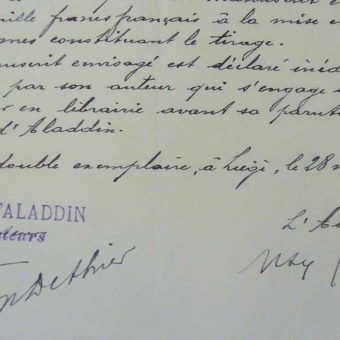 mille francs français à la mise e
mes constituant le tirage.
nuscrit envisagé est déclaré inéd
par son auteur qui s'engage
en librairie avant sa parut
d'Aladdin.
double exemplaire, à Liège, le 28
'ALADDIN
L'Au
Dethier